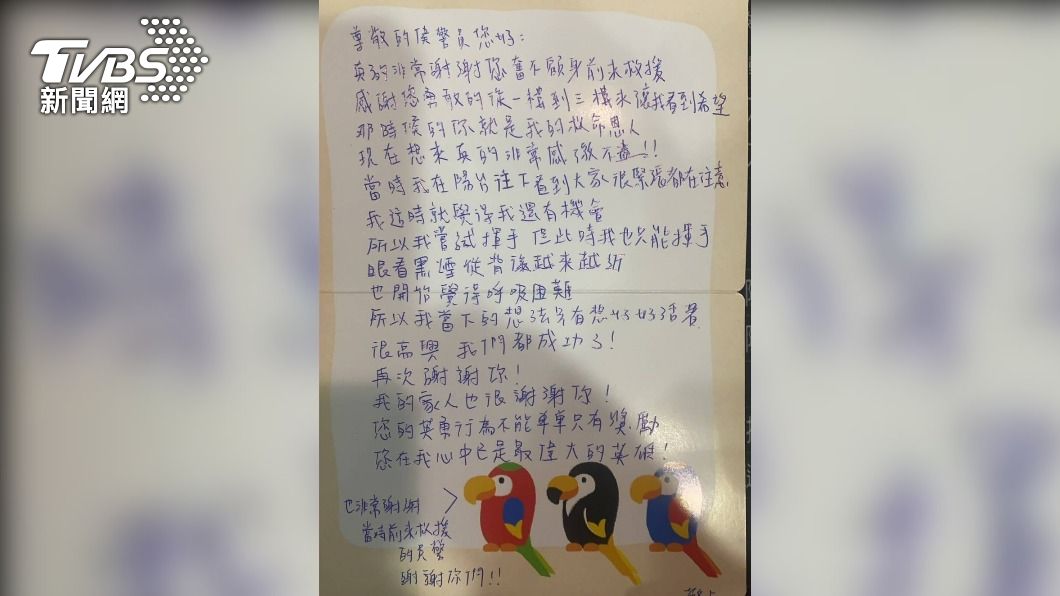 TVBS
新聞網
尊敬的侯警員您好：
真的非常謝謝您奮不顧身前來救援
感謝您勇敢的從一樓到三樓來讓我看到希望
那時候的你就是我的救命恩人
現在想來真的非常感激不盡!!
當時我在陽台往下看到大家很緊張都在注意
我這時就覺得我還有機會
所以我嘗試揮手 但此時我也只能揮手
眼看黑煙從背後越來越近
也開始覺得呼吸困難
所以我當下的想法只有想好好活著
很高興 我們都成功了!
再次謝謝你!
我的家人也很謝謝你!
您的英勇行為不能單單只有獎勵
您在我心中已是最偉大的英雄!
也非常謝謝
當時前來救援
的員警
謝謝你們!!